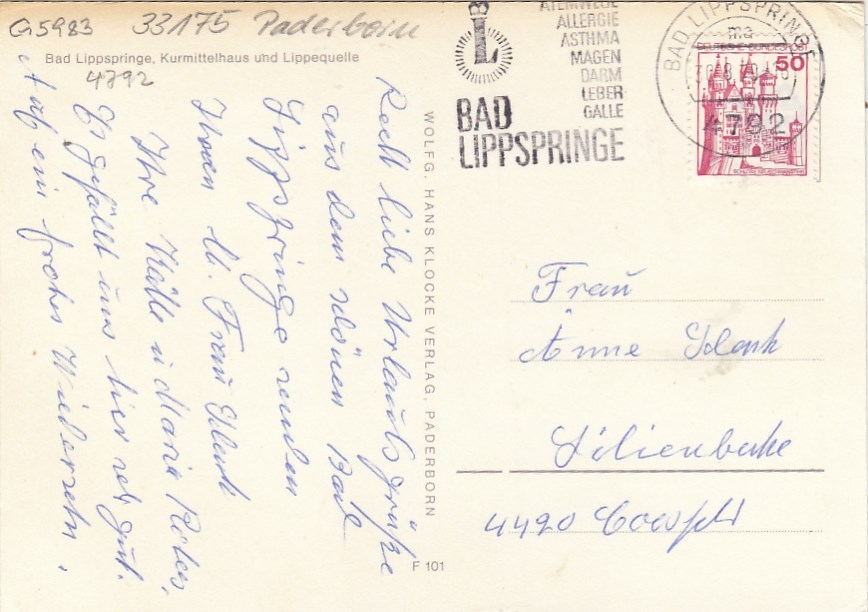 G5983 33175 Paderborn
Bad Lippspringe, Kurmittelhaus und Lippequelle
4792
Recht liebe Urlaubsgrüße
aus dem schönen Bad
Lippspringe senden
Ihnen lb. Frau
Ihre Käthe u Maria
Es gefällt uns hier sehr gut.
Auf ein frohes Wiedersehn.
WOLFG. HANS KLOCKE VERLAG, PADERBORN
F 101
L
ATEMWEGE
ALLERGIE
ASTHMA
MAGEN
DARM
LEBER
GALLE
BAD
LIPPSPRINGE
BAD LIPPSPRINGE
ma
4792
DEUTSCHE BUNDESPOST
50
SCHLOSS NEUSCHWANSTEIN
Frau
Anne
4420 Coesfeld